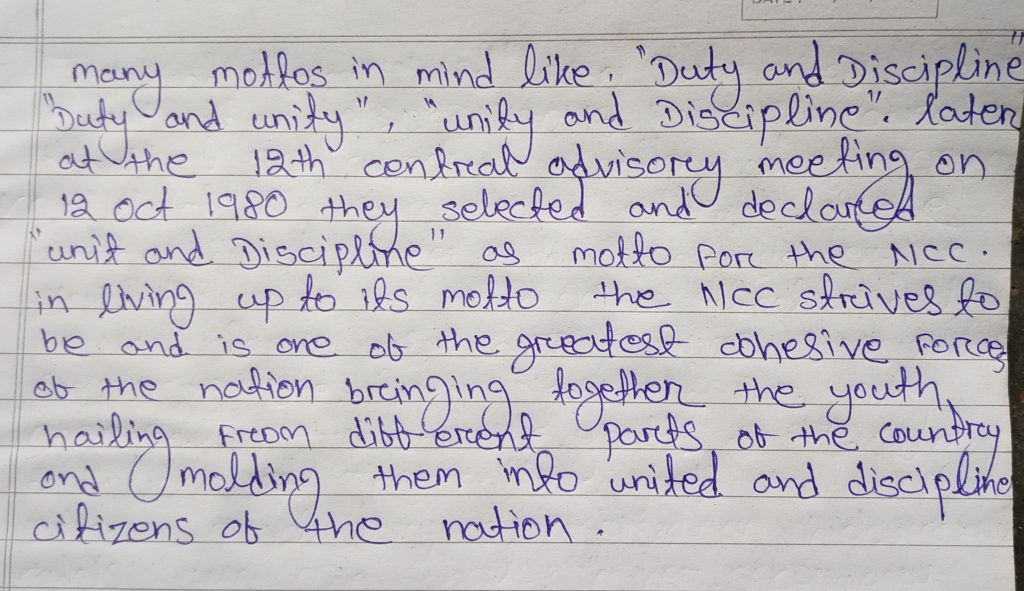 many mottos in mind like, "Duty and Discipline"
"Duty and unity", "unity and Discipline". later
at the 12th central advisory meeting on
12 oct 1980 they selected and declared
"unit and Discipline" as motto for the NCC.
in living up to its motto the NCC strives to
be and is one of the greatest cohesive forces
of the nation bringing together the youth
hailing from different parts of the country
and molding them into united and discipline
citizens of the nation.